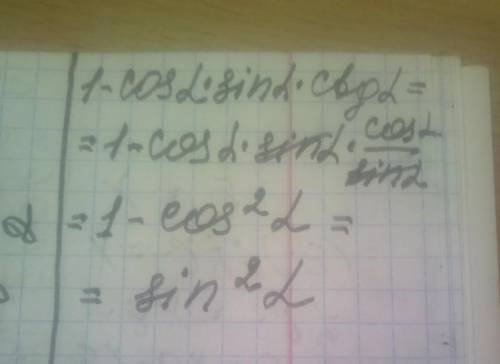 1-cosα·sinα·ctgα=
=1-cosα·sinα·cosα/sinα
=1-cos²α=
=sin²α